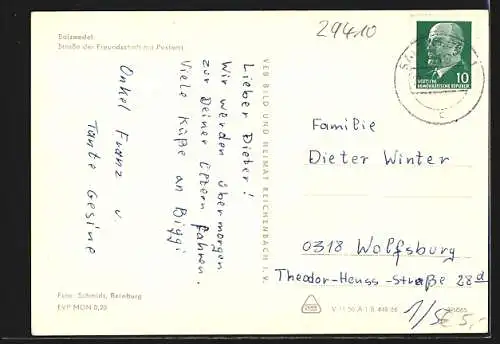 Salzwedel
Straße der Freundschaft mit Postamt
29410
10
DEUTSCHE
DEMOKRATISCHE REPUBLIK
Lieber Dieter!
Wir werden übermorgen
zur Deiner Eltern fahren.
Viele Küße an Biggi
Onkel Franz u.
Tante Gesine
VEB BILD UND HEIMAT REICHENBACH I. V.
Familie
Dieter Winter
0318 Wolfsburg
Theodor-Heuss-Straße 28d
Foto: Schmidt, Bernburg
EVP MDN 0,20
1/5€ 5,-